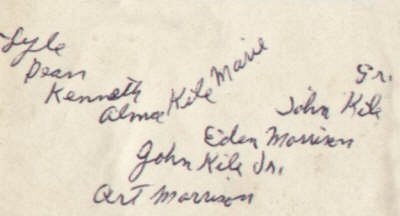 Lyle
Dean
Kenneth
Alma Kile Marie
Sr.
John Kile
Eden Morrison
John Kile Jr.
Art Morrison